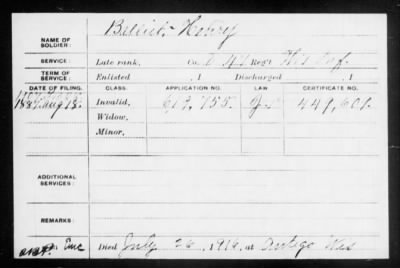 NAME OF SOLDIER: Henry
SERVICE: Late rank, Co. 47 Reg't Wis Inf.
TERM OF SERVICE: Enlisted , 1 Discharged , 1
DATE OF FILING. CLASS. APPLICATION NO. LAW. CERTIFICATE NO.
Aug 13. Invalid, 619,755. 449,601.
Widow,
Minor,
ADDITIONAL SERVICES:
REMARKS:
Died July 26, 1916, at Antigo Wis